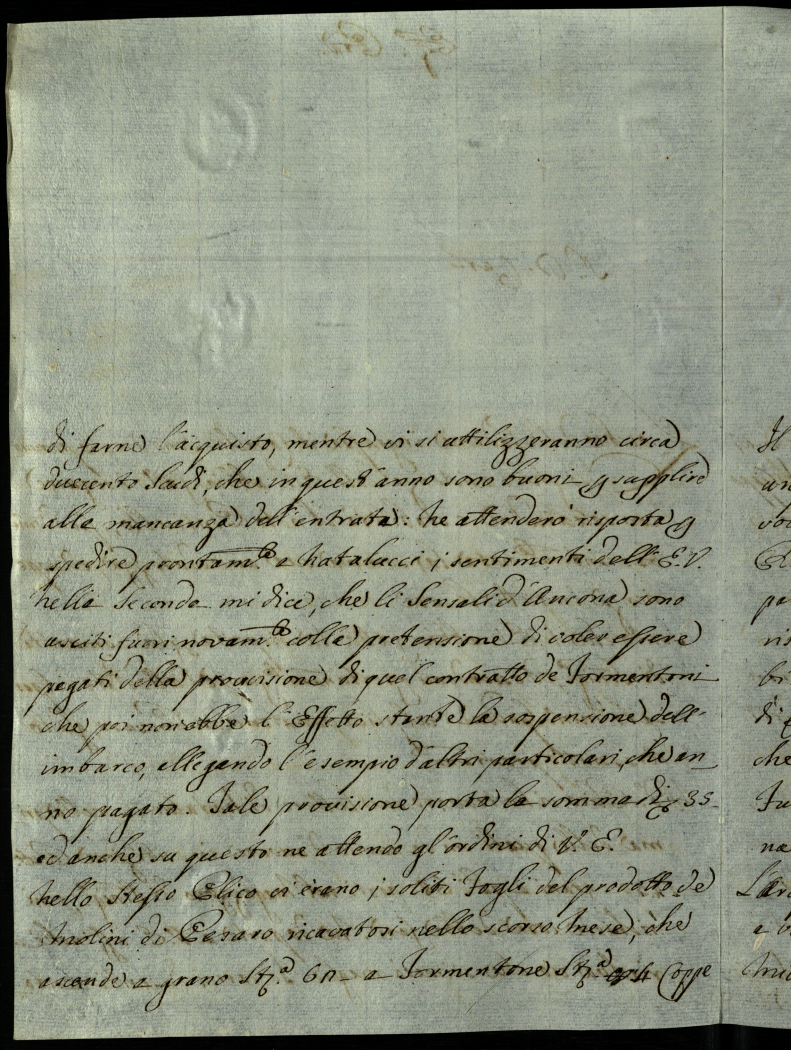 di farne l'acquisto, mentre vi si uttilizzeranno circa
duecento Scudi, che in quest'anno sono buoni p supplire
alla mancanza dell'entrata: Ne attenderò risposta p
spedire prontam.te a Natalucci i sentimenti dell'E.V.
Nella Seconda mi dice, che li Sensali d'Ancona sono
usciti fuori novam.te colla pretensione di voler essere
pagati della provvisione di quel contratto de Formentoni
che poi non ebbe l'Effetto stante la sospensione dell'
imbarco, allegando l'esempio d'altri particolari, che an_
no pagato. Tale provisione porta la somma di 35_
ed anche su questo ne attendo gl'ordini di V.E.
Nello Stesso Plico vi erano i soliti Fogli del prodotto de
Molini di Pesaro ricavatosi nello scorso Mese, che
ascende a grano St.a 60_ a Formentone St.a Coppe
Il
un
vo
pa
ris
bi
di
che
Fu
na
e